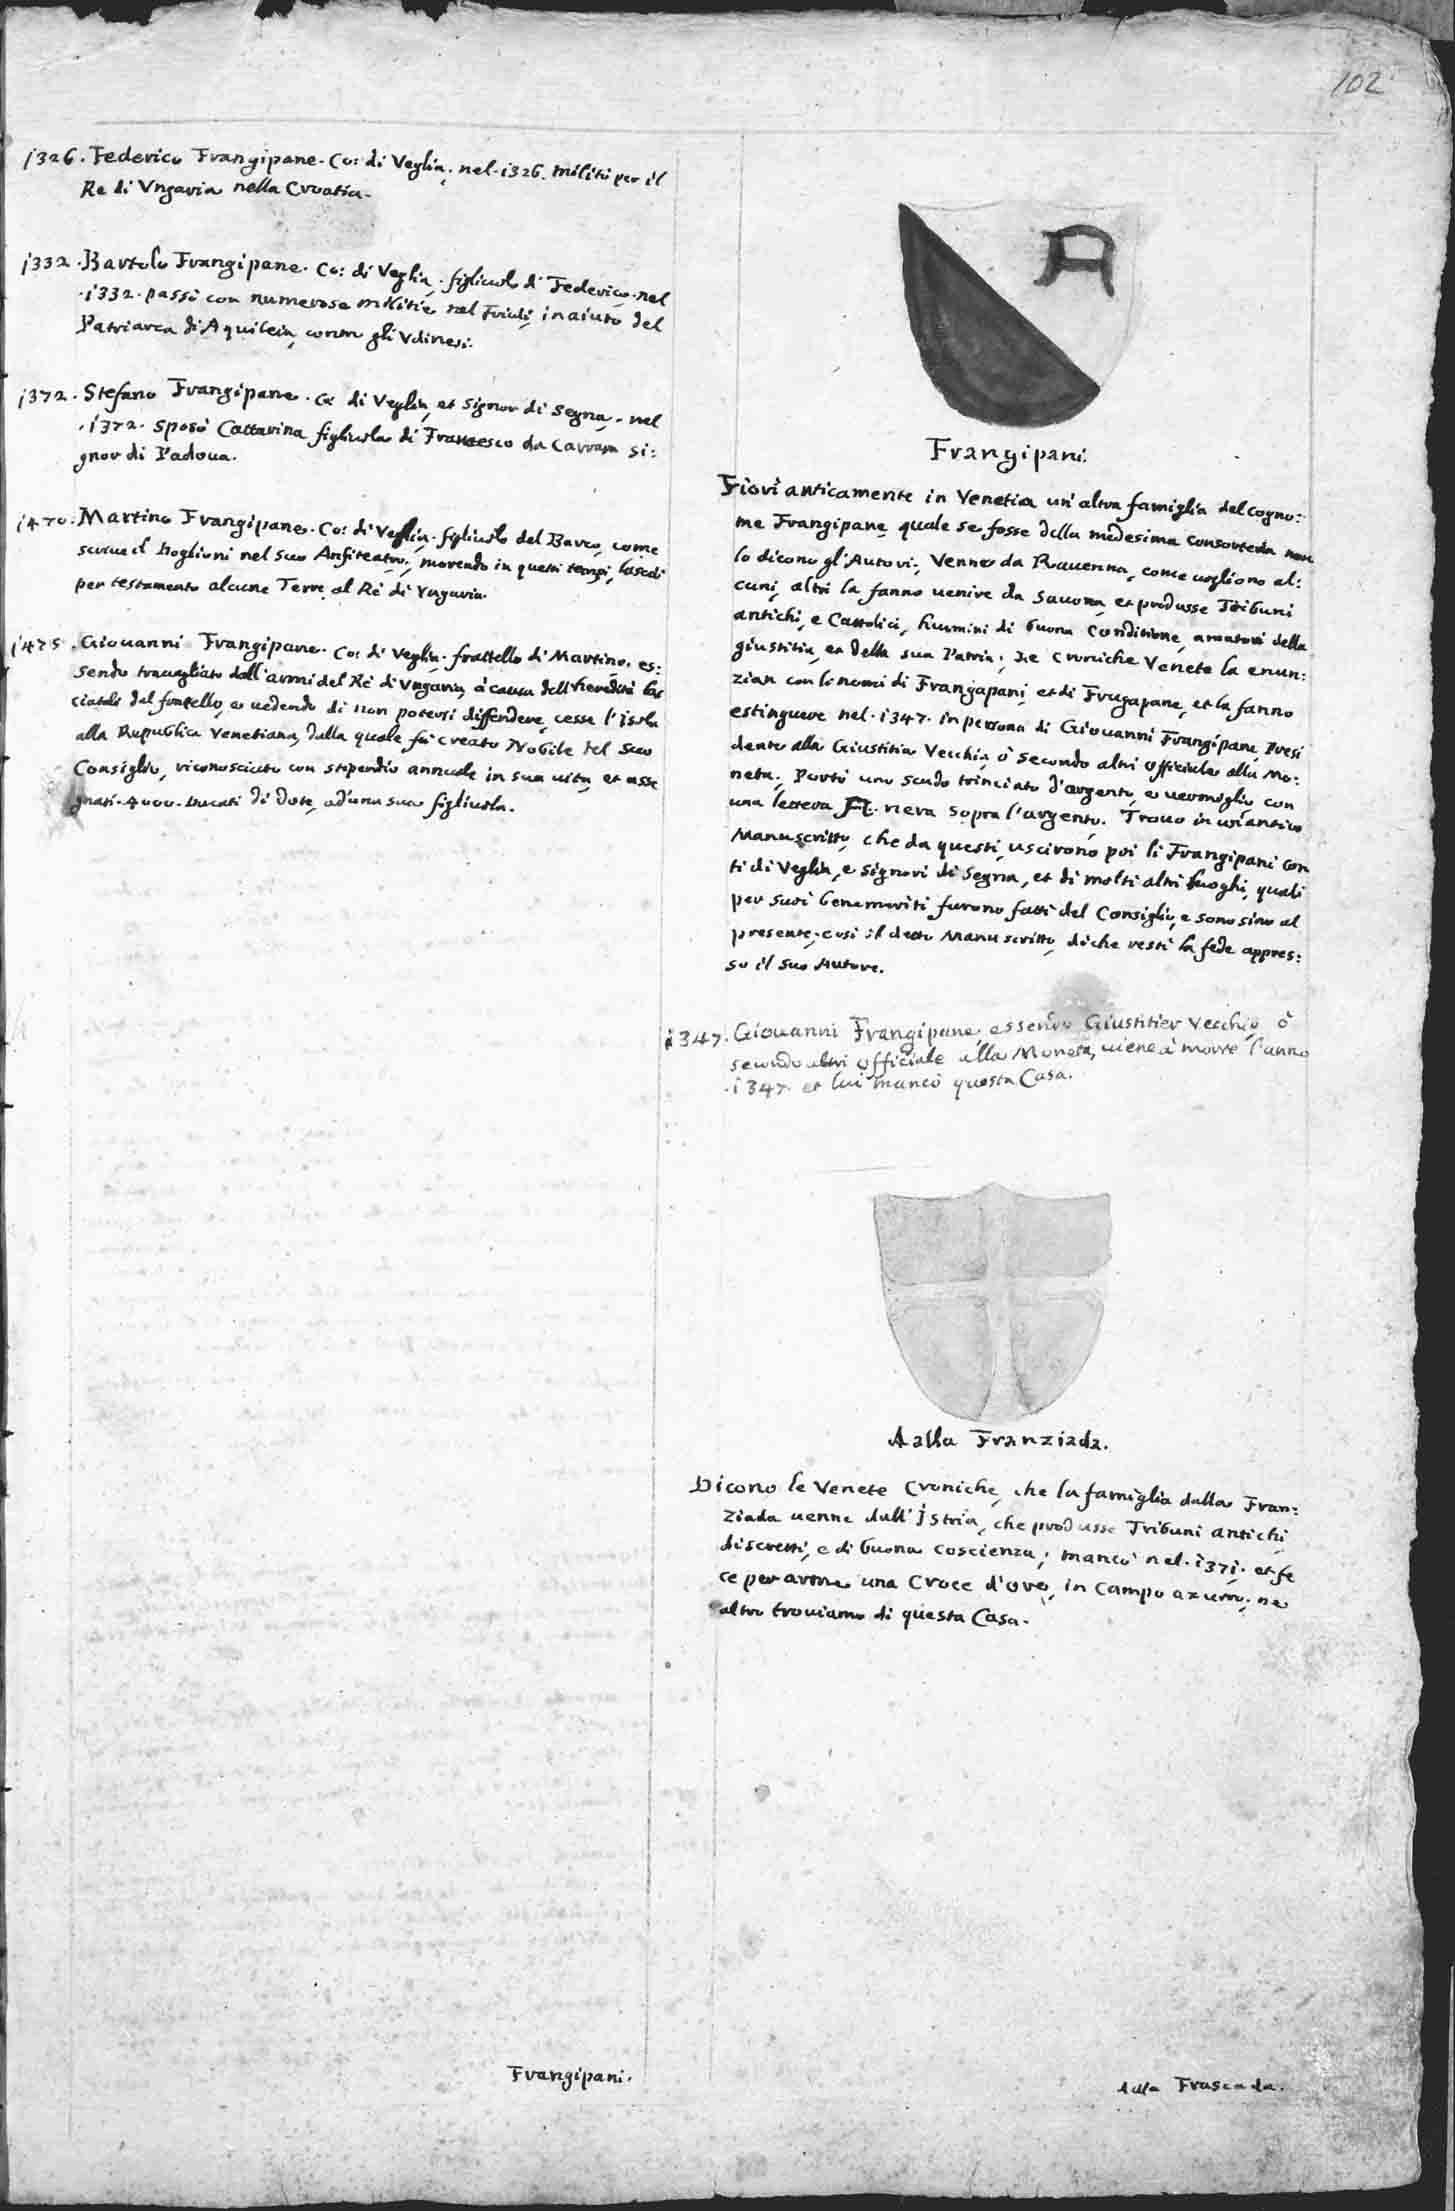 102
1326. Federico Frangipane. Co: di Veglia, nel. 1326. militò per il
Re di Vngaria nella Croatia.
1332. Bartolo Frangipane. Co: di Veglia, figliuolo di Federico, nel
.1332. passò con numerose militie nel Friuli, in aiuto del
Patriarca di Aquileia, contra gli Vdinesi.
1372. Stefano Frangipane. Co: di Veglia, et Signor di Segna, nel
.1372. sposò Cattarina figliuola di Francesco da Carrara Si:
gnor di Padoua.
1470. Martino Frangipane. Co: di Veglia. figliuolo del Barco, come
scriue il Doglioni nel suo Anfiteatro, morendo in questi tempi, lasciò
per testamento alcune Terre al Rè di Vngaria.
1475. Giouanni Frangipane. Co: di Veglia. frattello di Martino, es:
sendo trauagliato dall'armi del Rè di Vngaria, à causa dell'heredità las
ciatali dal frattello, e uedendo di non potersi diffendere, cesse l'isola
alla Republica Venetiana, dalla quale fù creato Nobile del Suo
Consiglio, riconosciuto con stipendio annuale in sua uita, et asse
gnati. 4000. Ducati di dote, ad'una sua figliuola.
Frangipani.
A
Frangipani.
Fiorì anticamente in Venetia un'altra famiglia del cogno:
me Frangipane, quale se fosse della medesima consorteria non
lo dicono gl'Autori; Venne da Rauenna, come uogliono al:
cuni, altri la fanno uenire da Sauona, et produsse Tribuni
antichi, e Cattolici, huomini di buona conditione, amatori della
giustitia, et della sua Patria; Le Croniche Venete la enun:
zian con li nomi di Frangapani, et di Frugapane, et la fanno
estinguere nel. 1347. in persona di Giouanni Frangipane Presi
dente alla Giustitia Vecchia, ò secondo altri officiale alla Mo:
neta. Portò uno scudo trinciato d'argento, e uermiglio con
una lettera A. nera sopra l'argento. Trouo in un'antico
Manuscritto, che da questi uscirono poi li Frangipani Con
ti di Veglia, e Signori di Segna, et di molti altri luoghi, quali
per suoi benemeriti furono fatti del Consiglio, e sono sino al
presente, cosi il detto Manuscritto, di che resti la fede appres:
so il suo Autore.
1347. Giouanni Frangipane, essendo Giustitier Vecchio, ò
secondo altri officiale alla Moneta, uiene à morte l'anno
.1347. et lui mancò questa Casa.
Dalla Franziada.
Dicono le Venete Croniche, che la famiglia dalla Fran:
ziada uenne dall'Istria, che produsse Tribuni antichi,
discretti, e di buona coscienza; mancò nel. 1371. et fe
ce per arma una Croce d'oro, in Campo azurro; ne
altro trouiamo di questa Casa.
Dalla Frascada.